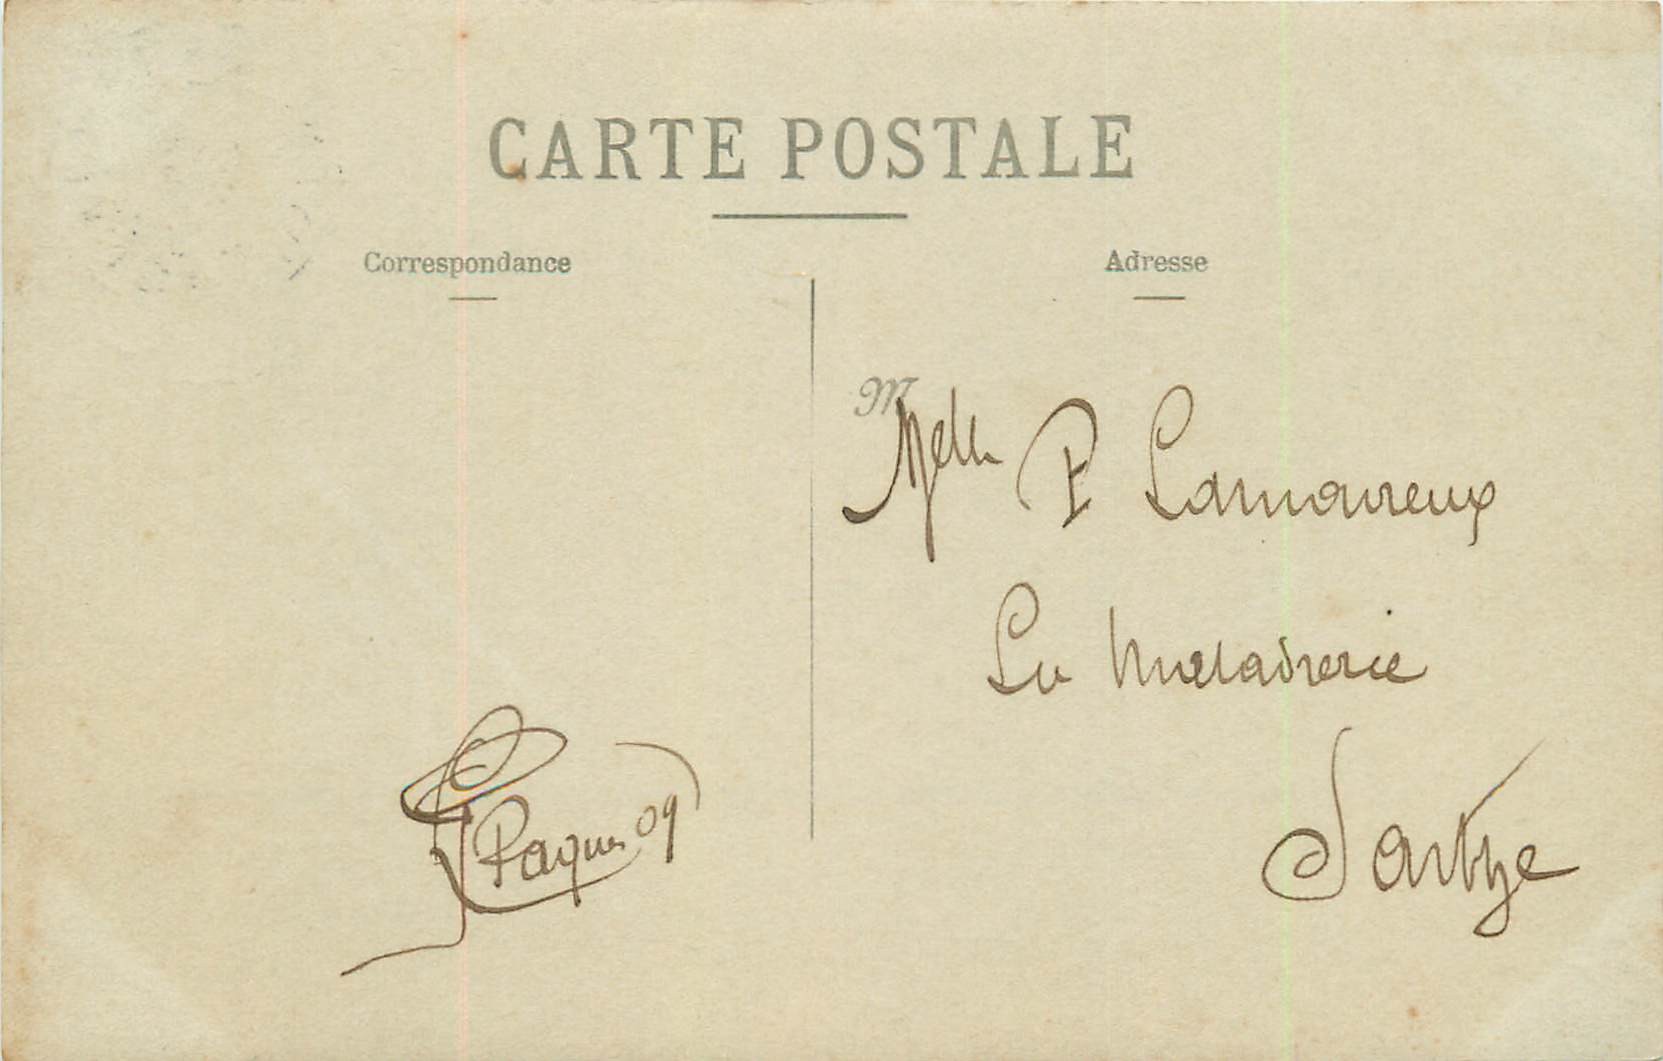 CARTE POSTALE
Correspondance
Adresse
M
Melle P Lamoureux
La Maladrerie
Sarthe
Paques 09